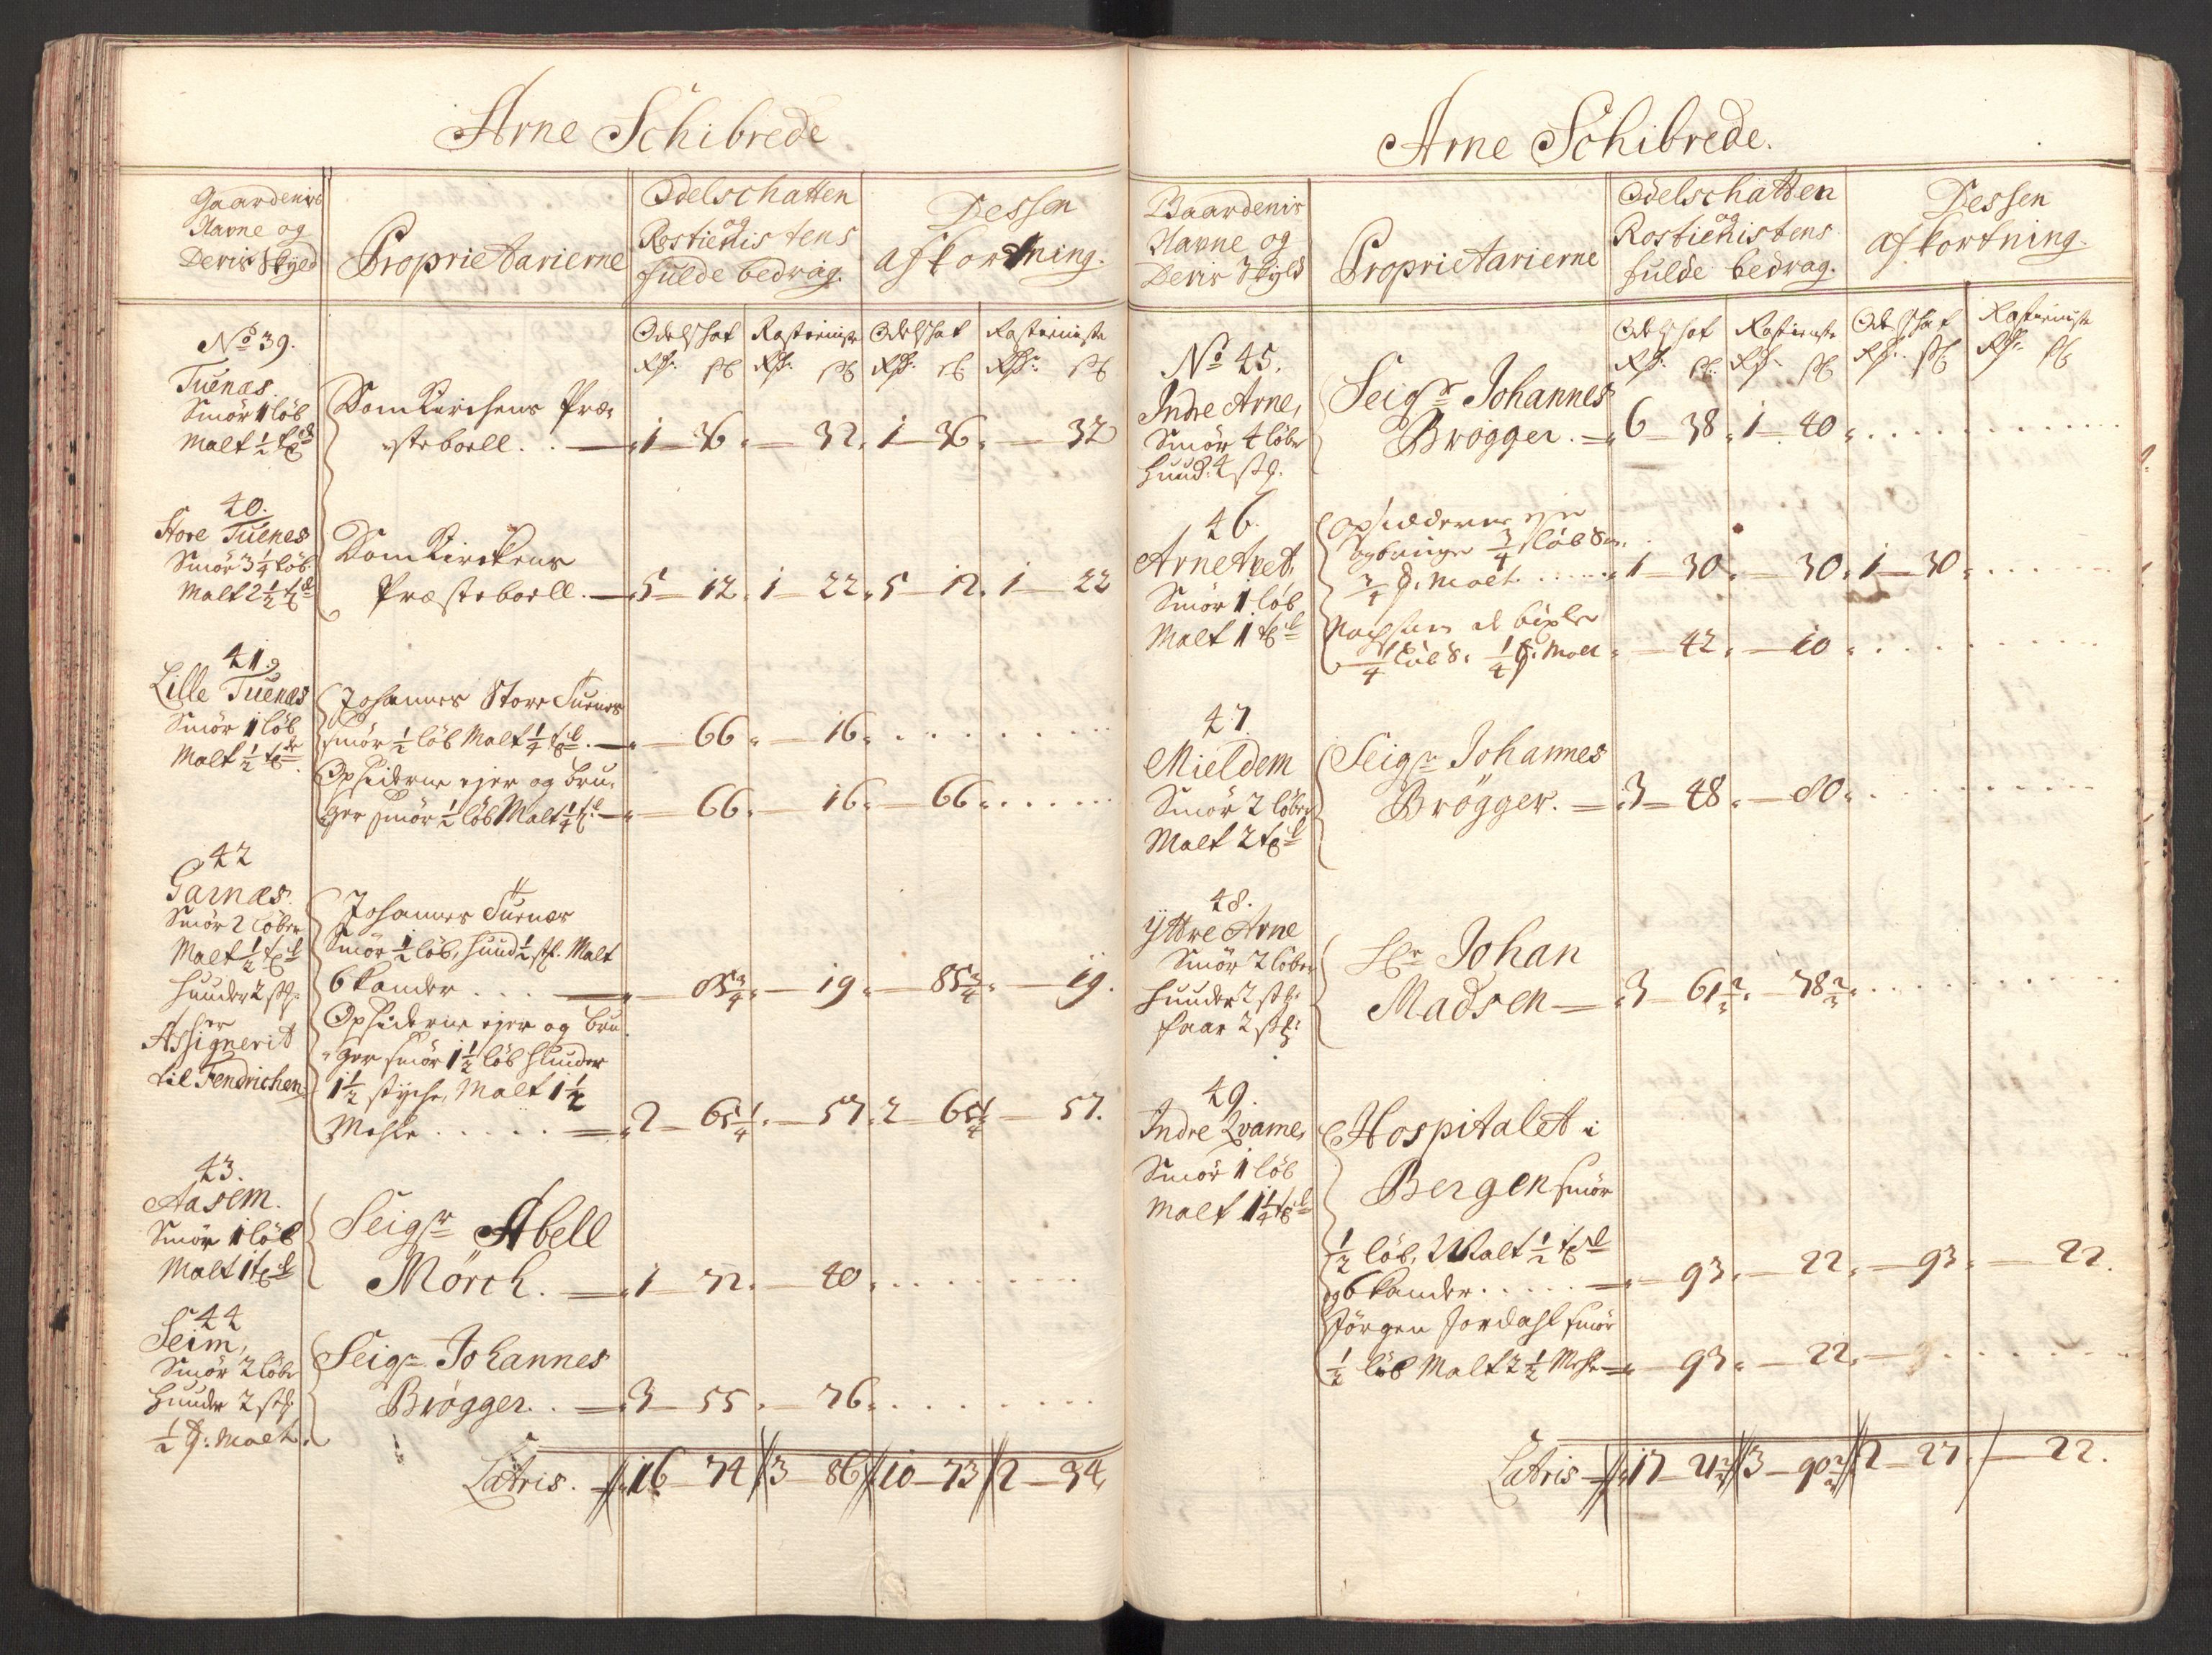 Arne Schibrede
Gaardenis
Navne og
Deris Skyld
Proprietarierne
Odelschatten
og
Rostienistens
fulde bedrag.
Dessen
afkortning.
Odelschat Rostieniste Odelschat Rostienste
Rdr. ß Rdr. ß Rdr. ß Rdr. ß
No 39.
Tuenæs.
Smör 1 löb
Malt 1/2 td
Dom Kirchens Præ-
steboell. . — 1 — 36. — 32. 1 — 36. — 32
40.
Store Tuenes
Smör 3 1/4 löb.
Malt 2 1/2 td
Dom Kirckens
Præsteboell. — 5 — 12. 1 — 22. 5 — 12. 1 — 22
41.
Lille Tuenæs
Smör 1 löb
Malt 1/2 td
Johannes Store Tuenes
smör 1/2 löb Malt 1/4 td. — 66. — 16. . . . . . .
Opsiderne ejer og bru-
ger smör 1/2 löb Malt 1/4 t. — 66. — 16. — 66. . . . . .
42
Garnæs.
Smör 2 löber
Malt 1/2 td
Huuder 2 st.
er
Assignerit
til Fendrichen
Johannes Tuenæs
Smör 1/2 löb, huud 1/2 st. Malt
6 Kander . . . . — 85 3/4. — 19. — 85 3/4. — 19.
Opsiderne ejer og bru-
ger smör 1 1/2 löb Huuder
1 1/2 styche, Malt 1 1/2
Mehle . . . . . — 2 — 65 1/4. — 57. 2 — 65 1/4 — 57.
43.
Aasem.
Smör 1 löb
Malt 1 td
Seigr Abell
Mörch. — 1 — 72. — 40. . . . . . .
44
Seim,
Smör 2 löbr
Huuder 2 st.
1/2 t: Malt.
Seigr. Johannes
Brögger. . — 3 — 55. — 76. . . . . . .
Latris. — 16 — 74 // 3 — 86 // 10 — 73 // 2 — 34
Arne Schibrede.
Gaardenis
Navne og
Deris Skyld
Proprietarierne
Odelschatten
og
Rostienistens
fulde bedrag.
Dessen
afkortning.
Odelschat Rostienste Odelschat Rostieniste
Rdr. ß Rdr. ß Rdr. ß Rdr. ß
No 45.
Indre Arne,
Smör 4 löbr
Huud: 4 st.
Seigr Johannes
Brögger. — 6 — 38. 1 — 40. . . . . . . .
46.
Arne Tvet,
Smör 1 löb
Malt 1 td
Opsidderne ejer
og bruger 3/4 löb Sm.
3/4 t. Malt . . . . . 1 — 30. — 30. 1 — 30. . . . . .
1/4 löb S. 1/4 t. Malt — 42. — 10. . . . .
47.
Mieldem
Smör 2 löber
Malt 2 td
Seigr Johannes
Brögger. — 3 — 48. — 80. . . . . . . .
48.
Yttre Arne
Smör 2 löber
Huuder 2 st.
faar 2 st:
Hr Johan
Madsen — 3 — 61 2/3. — 78 2/3. . . . . . . .
49.
Indre Qvame,
Smör 1 löb
Malt 1 1/4 td
Hospitalet i
Bergen smör
1/2 löb, Malt 1/2 td
og 6 Kander . . . . . — 93. — 22. — 93. — 22.
Jörgen Jordahl smör
1/2 löb Malt 2 1/2 Mehle — 93. — 22. . . . . .
Latris — 17 — 21 1/3 // 3 — 90 2/3 // 2 — 27. / — 22.